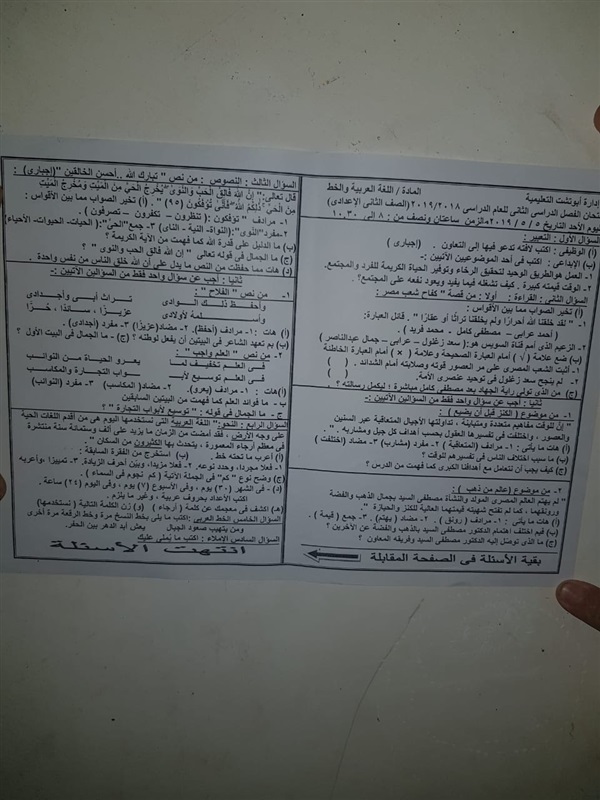 إدارة أبوتشت التعليمية المادة / اللغة العربية والخط
امتحان الفصل الدراسى الثانى للعام الدراسى ٢٠١٨/ ٢٠١٩ (الصف الثانى الإعدادى)
يوم الأحد التاريخ ٥ / ٥ / ٢٠١٩م الزمن ساعتان ونصف من : ٨ إلى ١٠.٣٠
السؤال الأول : التعبير :
(أ) الوظيفى : اكتب لافتة تدعو فيها إلى التعاون . (إجبارى )
(ب) الإبداعى : اكتب فى أحد الموضوعين الآتيين :-
١- العمل هو الطريق الوحيد لتحقيق الرخاء وتوفير الحياة الكريمة للفرد والمجتمع.
٢- الوقت قيمته كبيرة . كيف تشغله فيما يفيد ويعود نفعه على المجتمع؟ .
السؤال الثانى : القراءة : أولا : من قصة " كفاح شعب مصر :
(أ) تخير الصواب مما بين الأقواس :
١- " لقد خلقنا الله أحرارًا ولم يخلقنا تراثًا أو عقارًا " . قائل العبارة:
( أحمد عرابى – مصطفى كامل - محمد فريد ) .
٢- الزعيم الذى أمم قناة السويس هو:( سعد زغلول – عرابى – جمال عبدالناصر )
(ب) ضع علامة ( √ ) أمام العبارة الصحيحة وعلامة ( × ) أمام العبارة الخاطئة
١- أثبت الشعب المصرى على مر العصور قوته وصلابته أمام الشدائد . ( )
٢- لم ينجح سعد زغلول فى توحيد عنصرى الأمة. ( )
(ج) من الذى تولى راية الجهاد بعد مصطفى كامل مباشرة ؛ ليكمل رسالته ؟
ثانيا : أجب عن سؤال واحد فقط من السؤالين الآتيين :-
١- من موضوع ( الكنز قبل أن يضيع ) :
" إن للوقت مفاهيم متعددة ومتباينة ، تداولتها الأجيال المتعاقبة عبر السنين
والعصور ، واختلفت فى تفسيرها العقول بحسب أهداف كل جيل ومشاربه . "
(أ) هات ما يأتى : ١- مرادف (المتعاقبة ) ٢- مفرد (مشارب) ٣- مضاد (اختلفت )
(ب) ما سبب اختلاف الناس فى تفسيرهم للوقت؟
(ج) كيف يجب أن نتعامل مع أهدافنا الكبرى كما فهمت من الدرس ؟
٢- من موضوع (عالم من ذهب ) :
" لم يهتم العالم المصرى المولد والنشأة مصطفى السيد بجمال الذهب والفضة
ورونقهما ، كما لم تفتح شهيته قيمتهما العالية للكنز والحيازة "
(أ) هات ما يأتى : ١- مرادف ( رونق ) . ٢- مضاد ( يهتم ) . ٣- جمع ( قيمة ) .
(ب) فيم اختلف اهتمام الدكتور مصطفى السيد بالذهب والفضة عن الآخرين ؟
(ج) ما الذى توصل إليه الدكتور مصطفى السيد وفريقه المعاون ؟
بقية الأسئلة فى الصفحة المقابلة
السؤال الثالث : النصوص : من نص " تبارك الله ..أحسن الخالقين "(إجبارى) :
قال تعالى:" إِنَّ اللَّهَ فَالِقُ الْحَبِّ وَالنَّوَى يُخْرِجُ الْحَيَّ مِنَ الْمَيِّتِ وَمُخْرِجُ الْمَيِّتِ
مِنَ الْحَيِّ ذَلِكُمُ اللَّهُ فَأَنَّى تُؤْفَكُونَ (٩٥) " . (أ) تخير الصواب مما بين الأقواس :
١- مرادف " تؤفكون :( تنظرون – تكفرون – تصرفون ) .
٢- مفرد "النوى":(النواة- النية - الناى ) ٣- جمع "الحى":( الحيات- الحيوات- الأحياء)
(ب) ما الدليل على قدرة الله كما فهمت من الآية الكريمة ؟
(ج) ما الجمال فى قوله تعالى " إن الله فالق الحب والنوى " ؟
(د) هات مما حفظت من النص ما يدل على أن الله خلق الناس من نفس واحدة .
ثانيا : أجب عن سؤال واحد فقط من السؤالين الآتيين :-
١- من نص " الفلاح " :
وأحفظ ذلك الوادى تراث أبى وأجدادى
وأسلمه لأولادى عزيزًا ، سائدًا ، حُرَّا
(أ) هات :١- مرادف (أحفظ). ٢- مضاد(عزيزا) ٣- مفرد (أجدادى ) .
(ب) بم تعهد الشاعر فى البيتين أن يفعل لوطنه ؟ (ج) – ما الجمال فى البيت الأول ؟
٢- من نص " العلم واجب " :
فى العلم تخفيف لما يعرو الحياة من النوائب
فى العلم توسيع لأبـ ـواب التجارة والمكاسب
(أ)هات :١- مرادف (يعرو). ٢- مضاد( المكاسب) ٣- مفرد (النوائب )
ب - ما فوائد العلم كما فهمت من البيتين السابقين
ج - ما الجمال فى قوله : " توسيع لأبواب التجارة " ؟
السؤال الرابع : النحو :" اللغة العربية التى نستخدمها اليوم هى من أقدم اللغات الحية
على وجه الأرض ، فقد أمضت من الزمان ما يزيد على ألف وستمائة سنة منتشرة
فى معظم أرجاء المعمورة ، يتحدث بها الكثيرون من السكان " .
(أ) أعرب ما تحته خط . (ب) استخرج من الفقرة السابقة :
١- فعلا مجردا، وحدد نوعه. ٢- فعلا مزيدا، وبين أحرف الزيادة. ٣- تمييزا ،وأعربه
(ج) وضح نوع "كم" فى الجملة الآتية ( كم نجوم فى السماء ) .
(د) - فى الشهر (٣٠) يوم ، وفى الأسبوع (٧) يوم ، وفى اليوم (٢٤) ساعة .
اكتب الأعداد بحروف عربية ، وغير ما يلزم .
(هـ) اكشف فى معجمك عن كلمة ( أرجاء ) و) زن الكلمة التالية ( نستخدمها)
السؤال الخامس الخط العربى : اكتب ما يلى بخط النسخ مرة وخط الرقعة مرة أخرى
ومن يتهيب صعود الجبال يعش أبد الدهر بين الحفر.
السؤال السادس الإملاء : اكتب ما يُملى عليك
انتهت الأسئلة